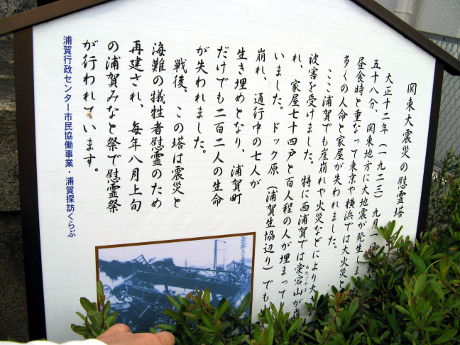 関東大震災の慰霊塔
大正十二年（一九二三）九月
五十八分、関東地方に大地震が発生し
昼食時と重なって東京や横浜では大火災と
多くの人命と家屋が失われました。
ここ浦賀でも崖崩れや火災などにより大
被害を受けました。特に西浦賀では愛宕山が
れ、家屋七十四戸と百人程の人が埋まって
いました。ドック原（浦賀生協辺り）でも
崩れ、通行中の七人が
生き埋めとなり、浦賀町
だけでも二百二人の生命
が失われました。
戦後、この塔は震災と
海難の犠牲者慰霊のため
再建され、毎年八月上旬
の浦賀みなと祭で慰霊祭
が行われています。
浦賀行政センター市民協働事業・浦賀探訪くらぶ